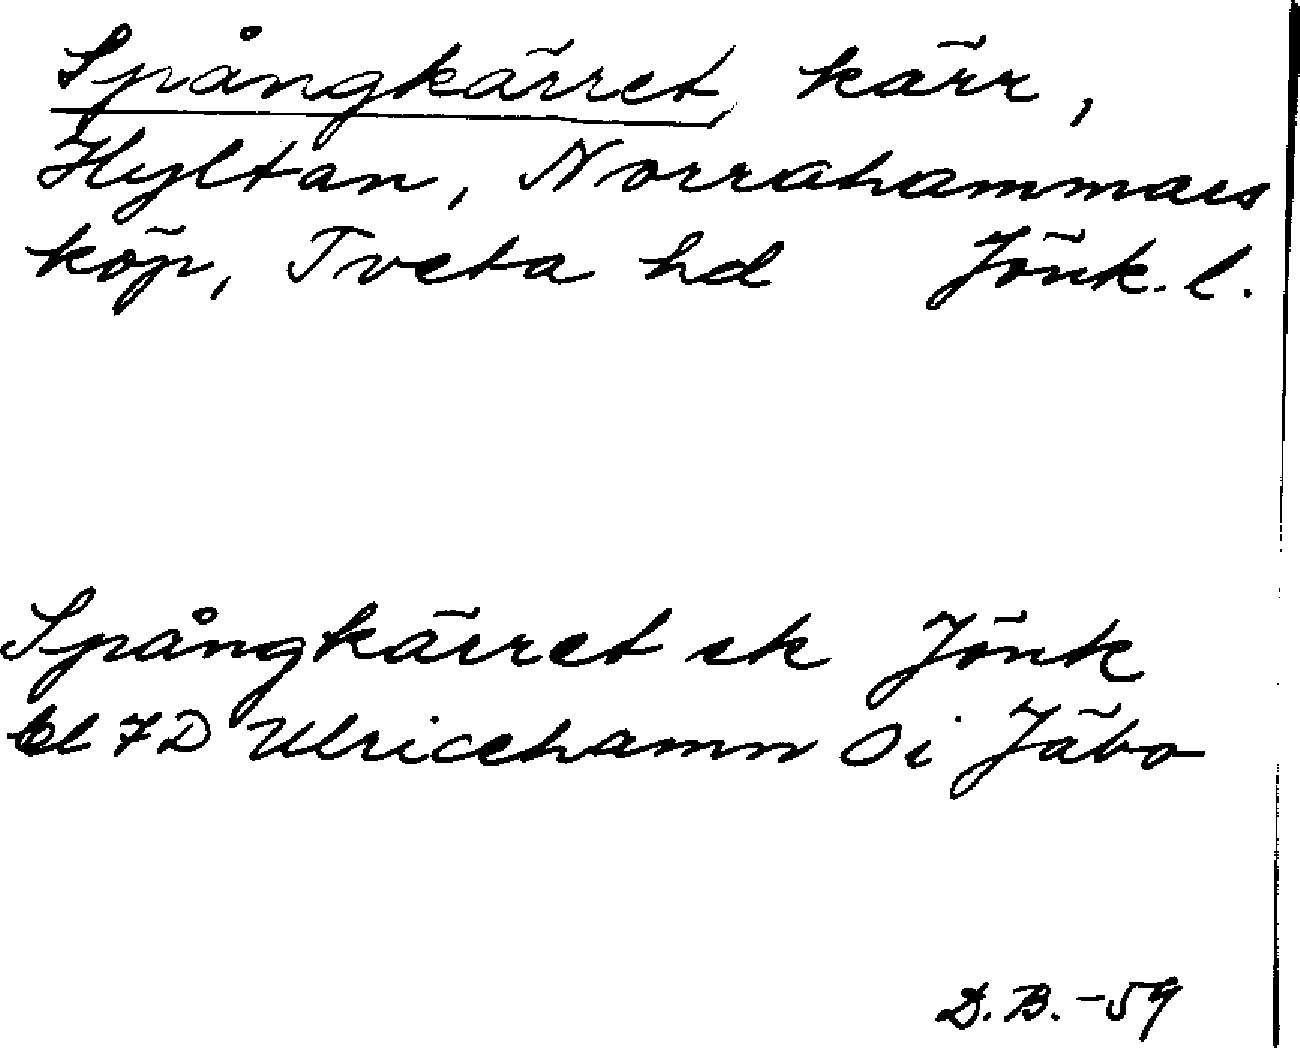 Spångkärret, kärr,
Hyltan, Norrahammars
köp, Tveta hd Jönk. l.
Spångkärret ek Jönk
bl 7D Ulricehamn Oi Jäbo
D.B. -59